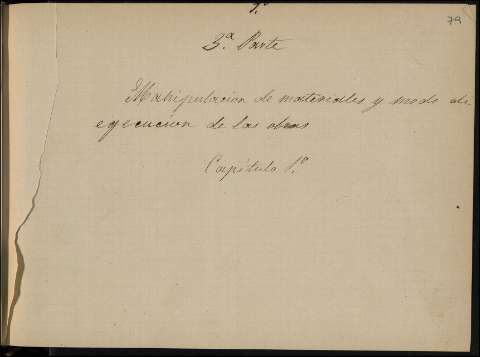 79
3ª Parte
Manipulacion de materiales y modo de
egecucion de las obras
Capítulo 1º